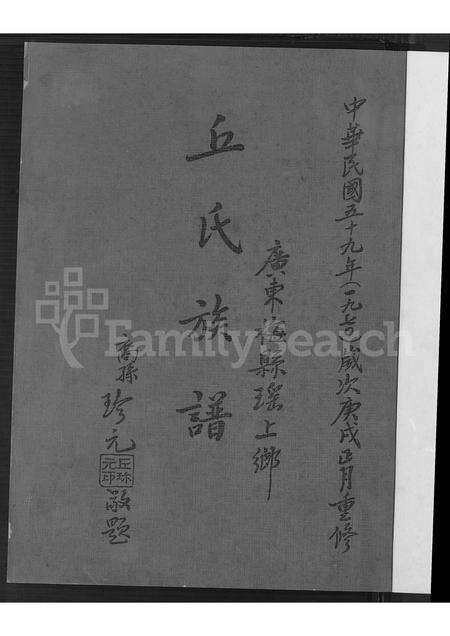 中華民國五十九年(一九七〇)歲次庚戌正月重修
廣東梅縣瑤上鄉
丘氏族譜
裔孫珍元敬題
丘珍元印
FamilySearch